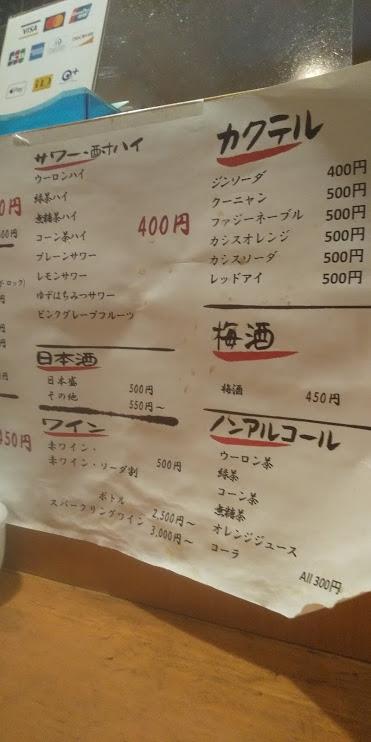 VISA
JCB
Pay
iD
サワー・酎ハイ
ウーロンハイ
緑茶ハイ
無糖茶ハイ
コーン茶ハイ
プレーンサワー
レモンサワー
ゆずはちみつサワー
ピンクグレープフルーツ
400円
日本酒
日本盛 500円
その他 550円～
ワイン
赤ワイン・
赤ワイン・ソーダ割 500円
ボトル 2,500円～
スパークリングワイン 3,000円～
カクテル
ジンソーダ 400円
クーニャン 500円
ファジーネーブル 500円
カシスオレンジ 500円
カシスソーダ 500円
レッドアイ 500円
梅酒
梅酒 450円
ノンアルコール
ウーロン茶
緑茶
コーン茶
無糖茶
オレンジジュース
コーラ
All 300円